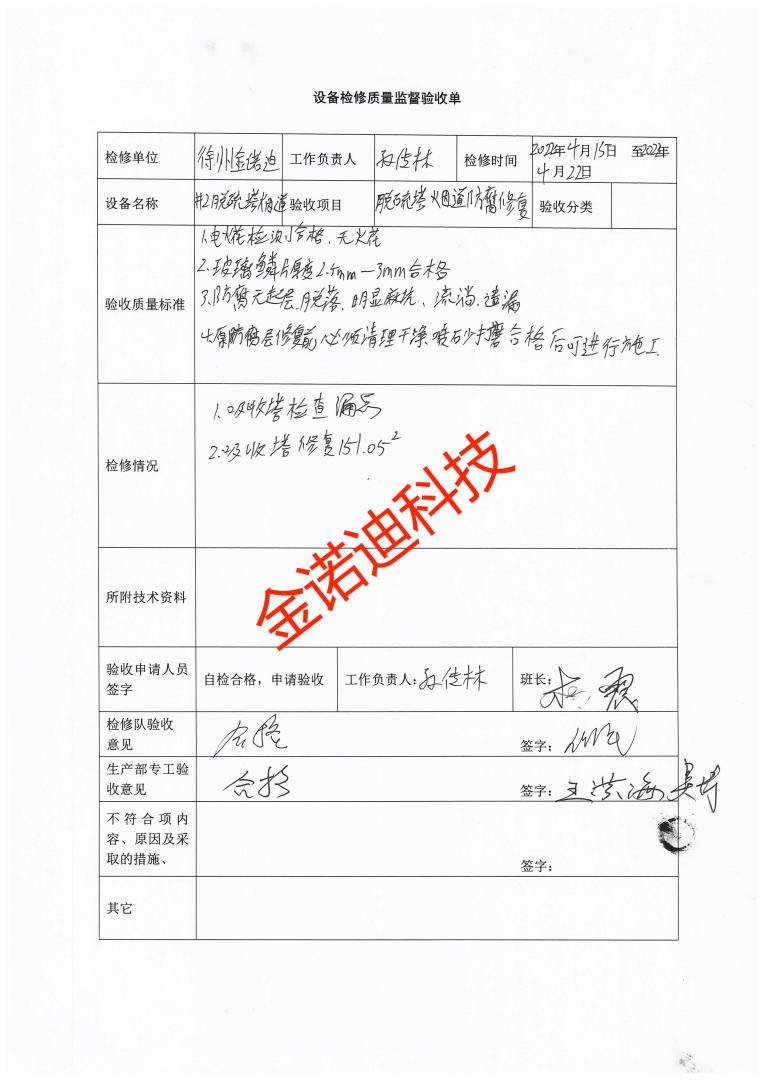 设备检修质量监督验收单
检修单位 徐州金诺迪 工作负责人 孙传林 检修时间 2022年4月15日 至2022年4月22日
设备名称 #2脱硫塔烟道 验收项目 脱硫塔烟道防腐修复 验收分类
验收质量标准
1.电火花检测合格、无火花
2.玻璃鳞片厚度2.5mm—3mm合格
3.防腐无起层、脱落、明显麻坑、流淌、遗漏
4.原防腐层修复前必须清理干净喷砂打磨合格后可进行施工
检修情况
1.吸收塔检查漏点
2.吸收塔修复151.05²
金诺迪科技
所附技术资料
验收申请人员签字 自检合格，申请验收 工作负责人：孙传林 班长：
检修队验收意见 合格 签字：
生产部专工验收意见 合格 签字：
不符合项内容、原因及采取的措施、 签字：
其它